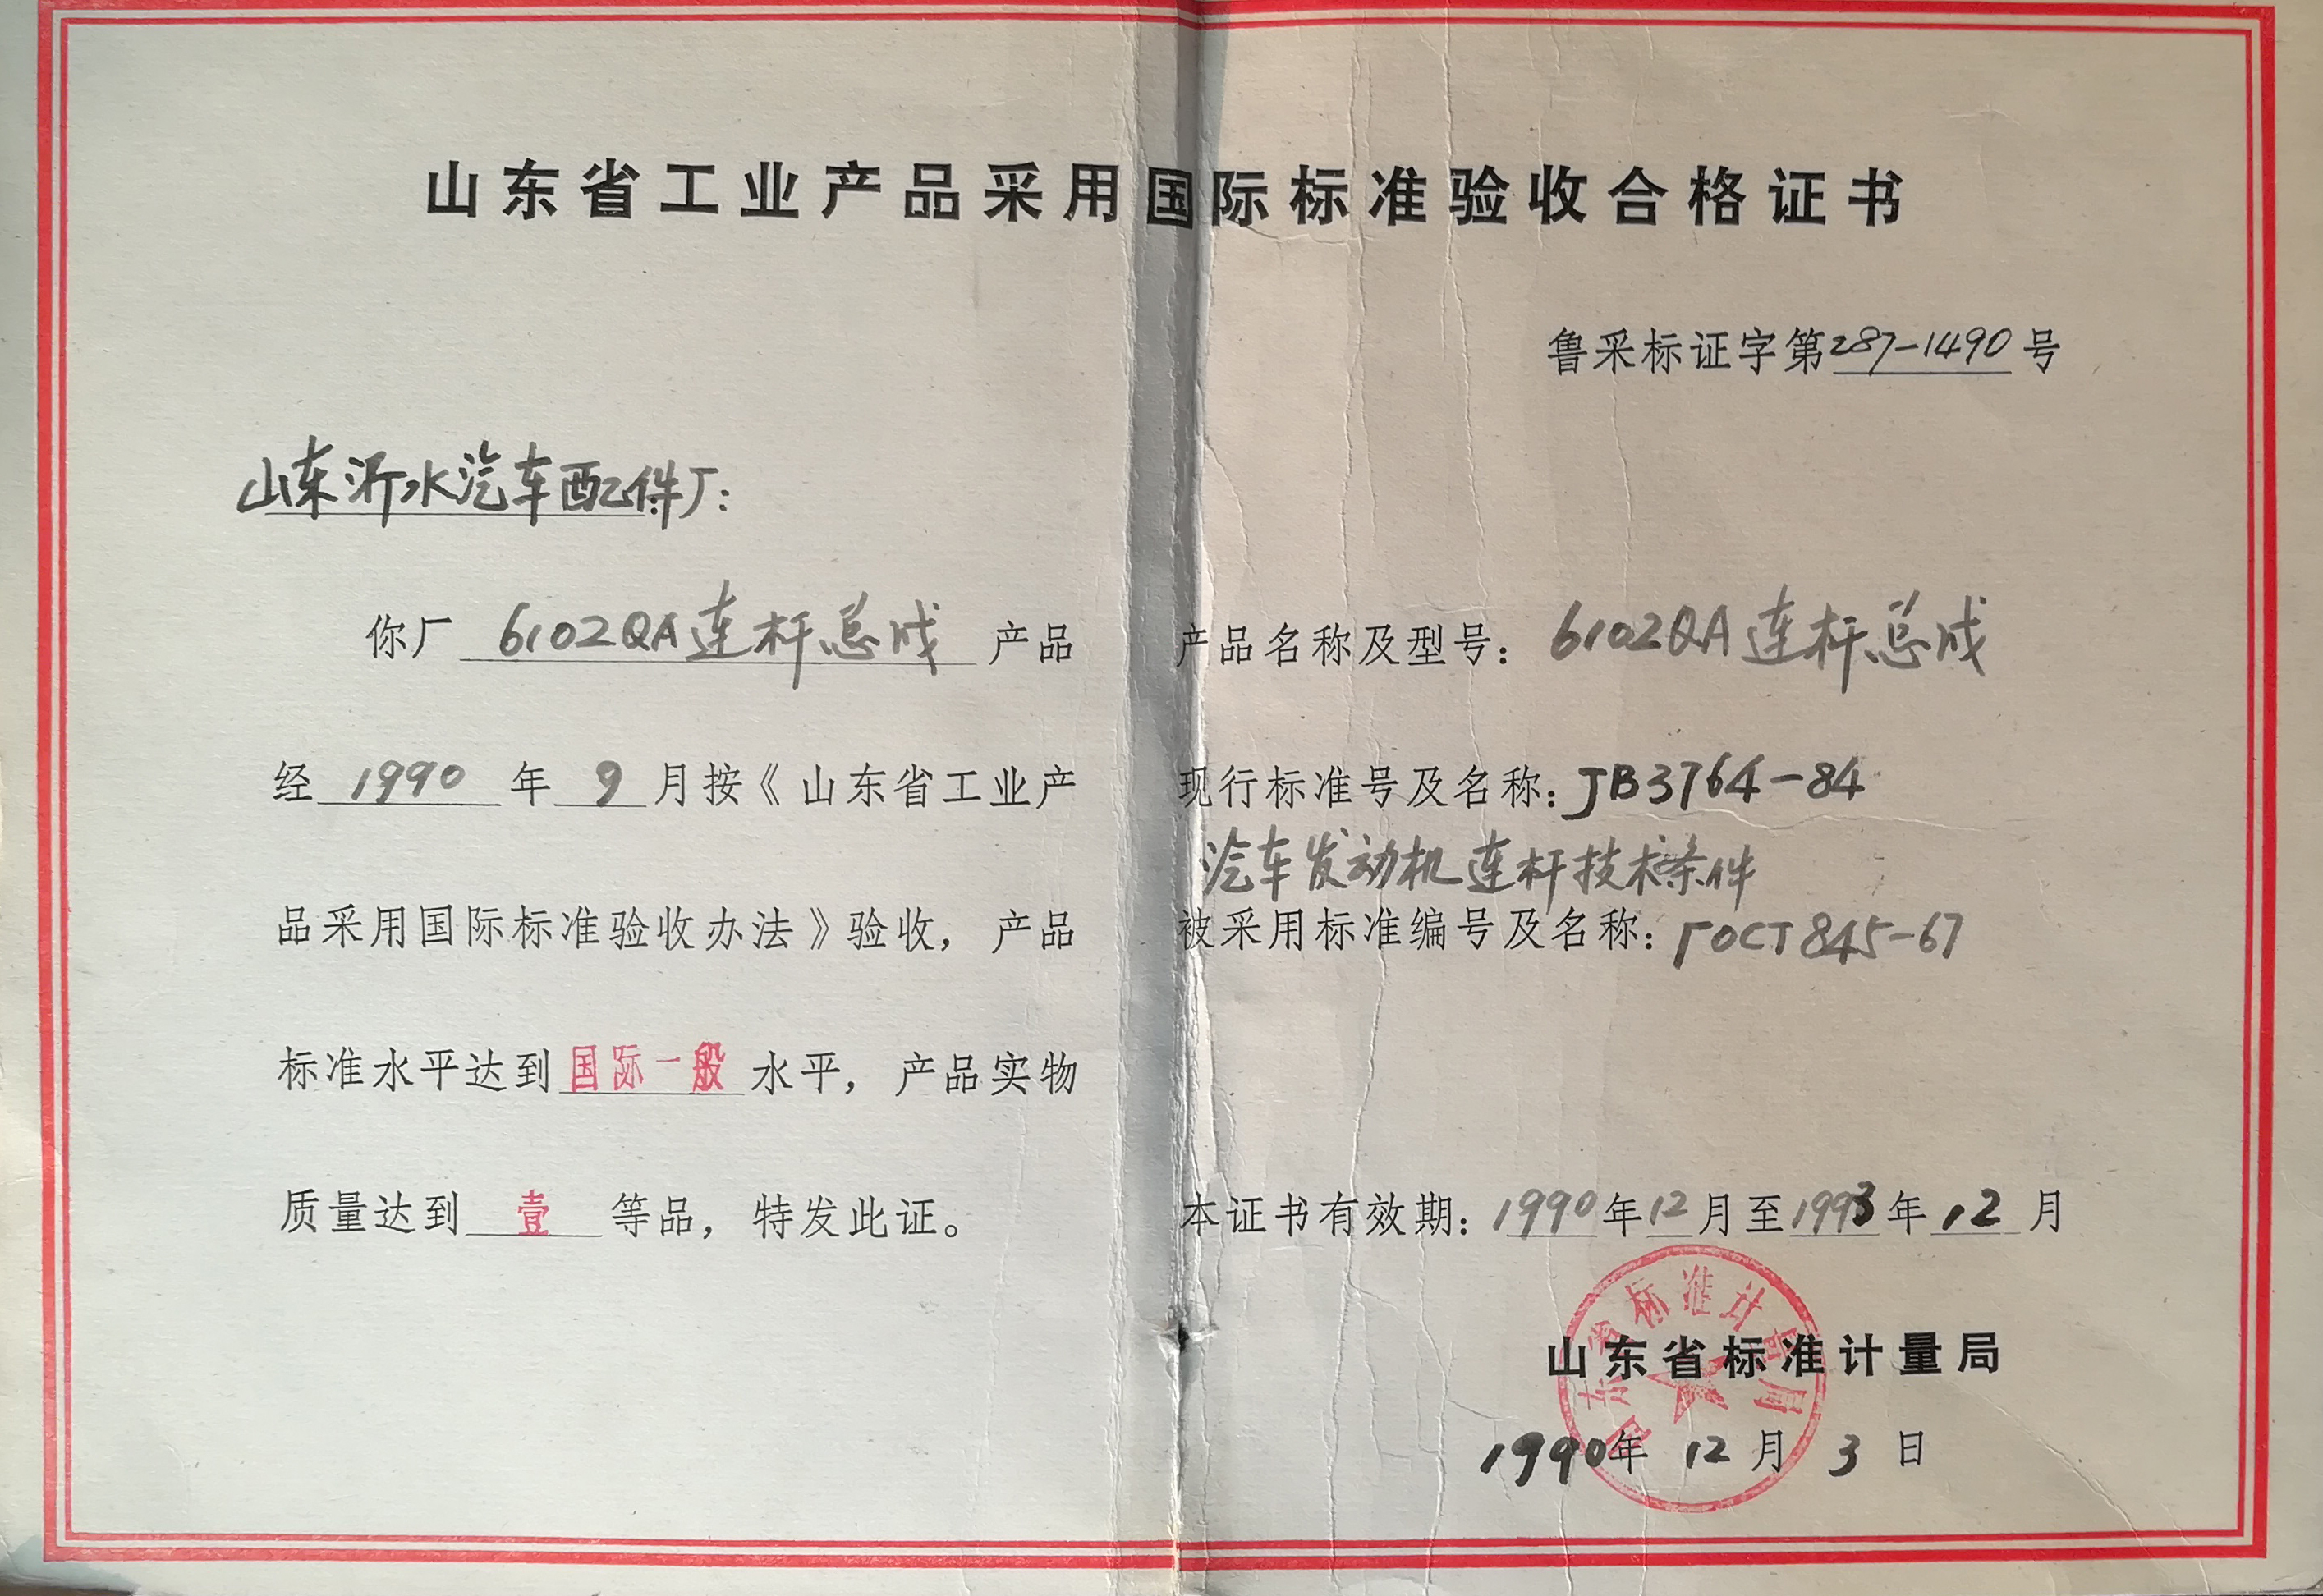 山东省工业产品采用国际标准验收合格证书
鲁采标证字第287-1490号
山东沂水汽车配件厂：
你厂 6102QA连杆总成 产品
经 1990 年 9 月按《山东省工业产
品采用国际标准验收办法》验收，产品
标准水平达到国际一般水平，产品实物
质量达到 壹 等品，特发此证。
产品名称及型号：6102QA连杆总成
现行标准号及名称：JB3764-84
汽车发动机连杆技术条件
被采用标准编号及名称：ГОСТ845-67
本证书有效期：1990年12月至1993年12月
山东省标准计量局
山东省标准计量局
1990年 12 月 3 日